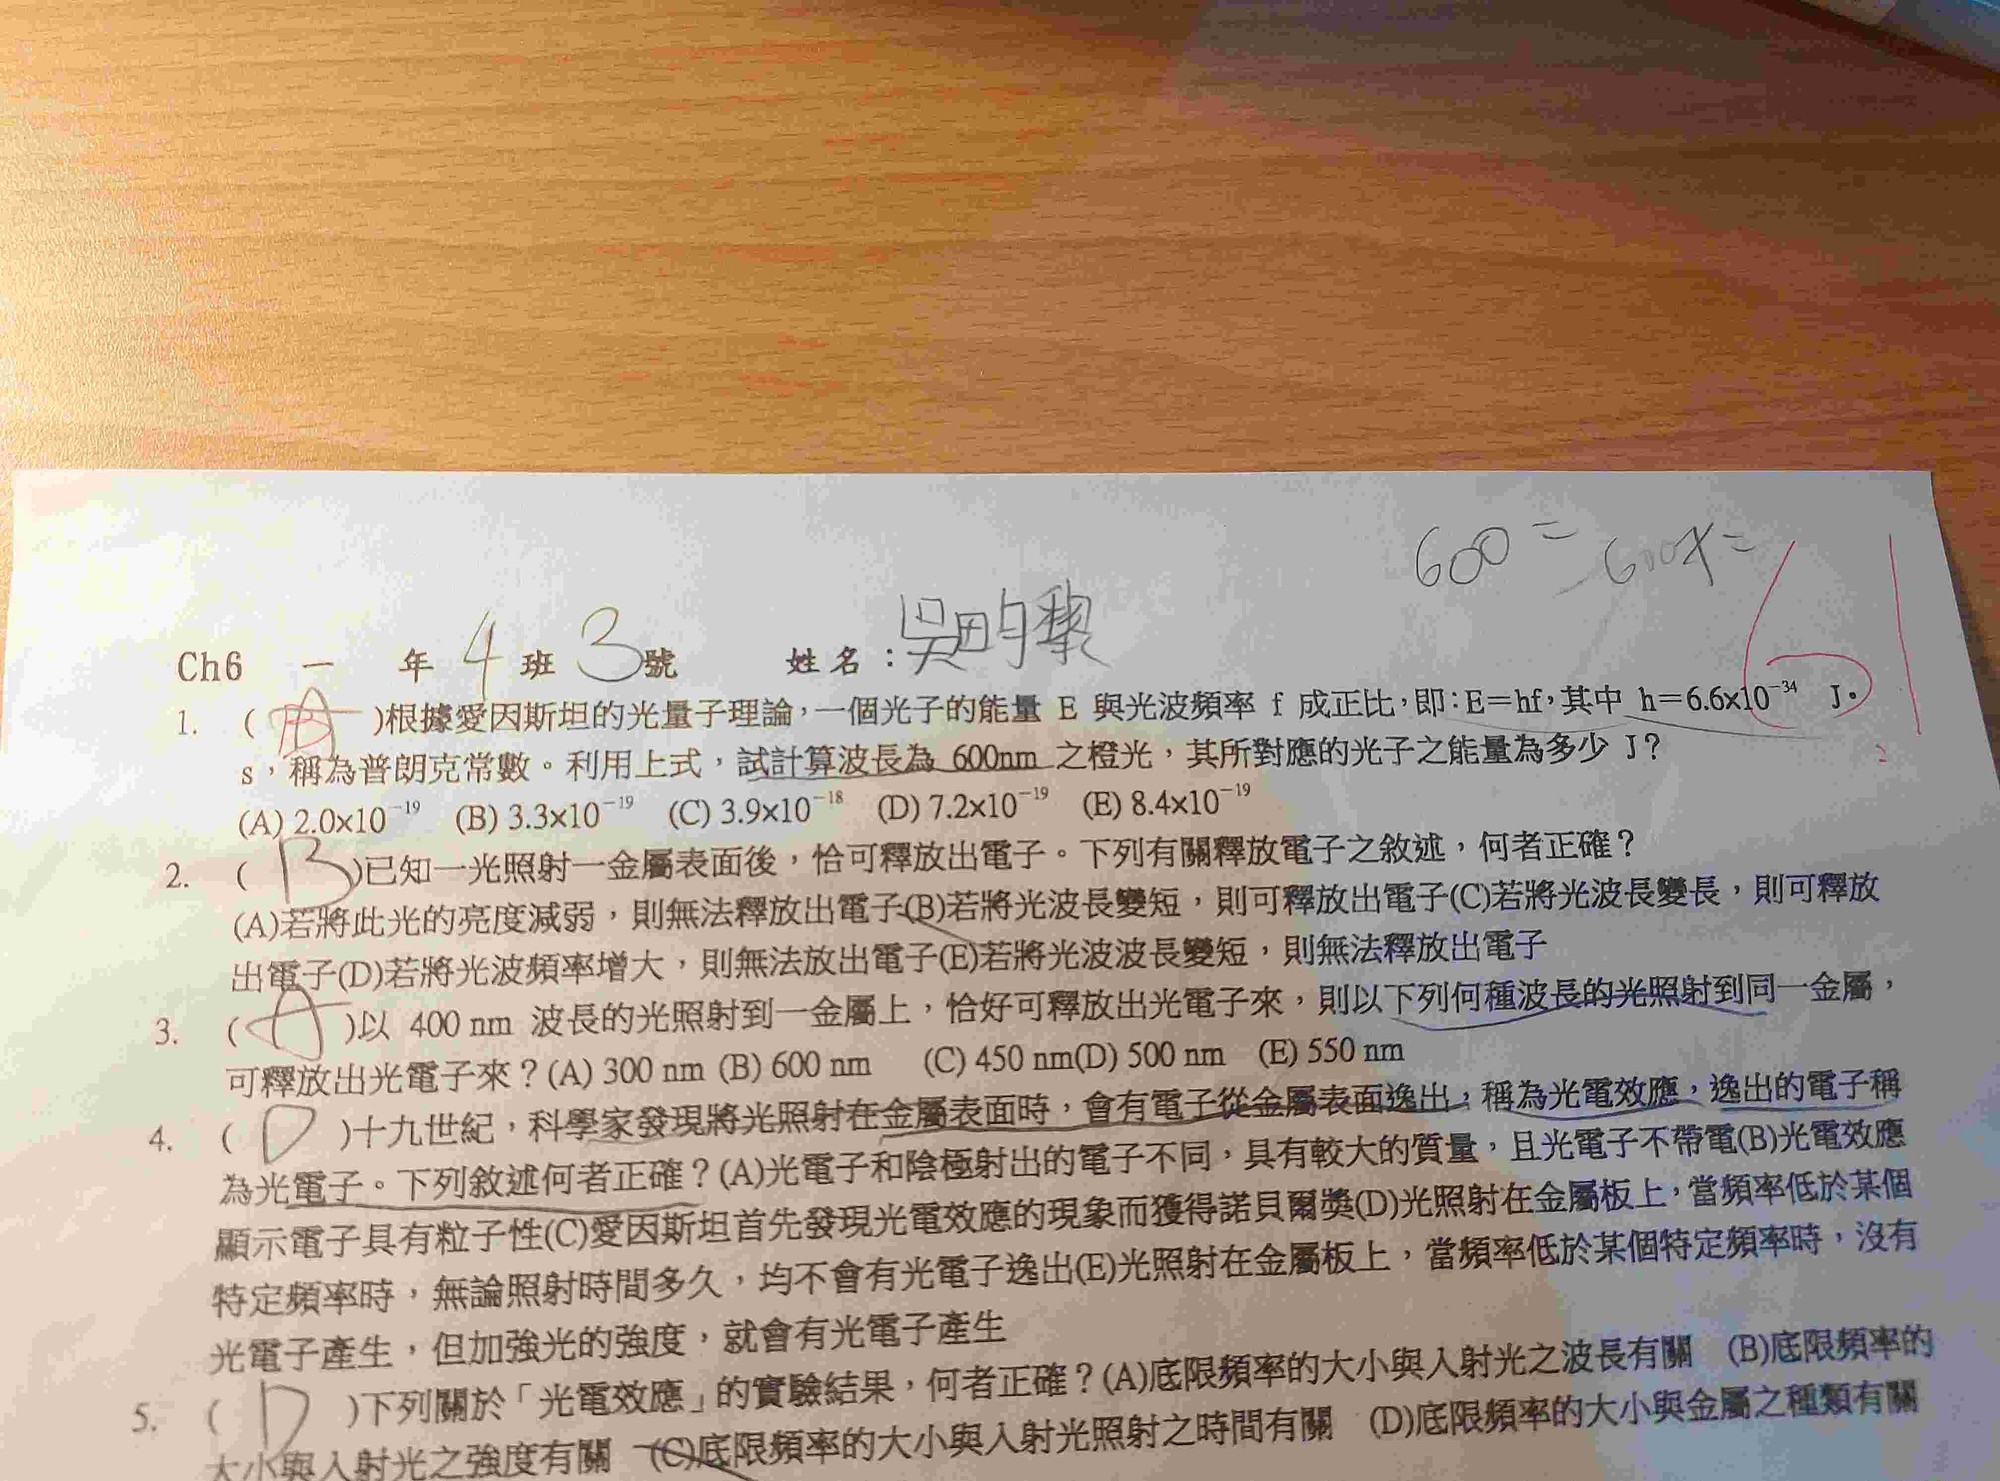 600 = 600x =
61
Ch6 一 年 4 班 3 號 姓名：吳昀
1. ( A B )根據愛因斯坦的光量子理論，一個光子的能量 E 與光波頻率 f 成正比，即：E＝hf，其中 h＝6.6x10⁻³⁴ J．
s，稱為普朗克常數。利用上式，試計算波長為 600nm 之橙光，其所對應的光子之能量為多少 J？
(A) 2.0x10⁻¹⁹ (B) 3.3x10⁻¹⁹ (C) 3.9x10⁻¹⁸ (D) 7.2x10⁻¹⁹ (E) 8.4x10⁻¹⁹
2. ( B )已知一光照射一金屬表面後，恰可釋放出電子。下列有關釋放電子之敘述，何者正確？
(A)若將此光的亮度減弱，則無法釋放出電子(B)若將光波長變短，則可釋放出電子(C)若將光波長變長，則可釋放
出電子(D)若將光波頻率增大，則無法放出電子(E)若將光波波長變短，則無法釋放出電子
3. ( A )以 400 nm 波長的光照射到一金屬上，恰好可釋放出光電子來，則以下列何種波長的光照射到同一金屬，
可釋放出光電子來？(A) 300 nm (B) 600 nm (C) 450 nm(D) 500 nm (E) 550 nm
4. ( D )十九世紀，科學家發現將光照射在金屬表面時，會有電子從金屬表面逸出，稱為光電效應，逸出的電子稱
為光電子。下列敘述何者正確？(A)光電子和陰極射出的電子不同，具有較大的質量，且光電子不帶電(B)光電效應
顯示電子具有粒子性(C)愛因斯坦首先發現光電效應的現象而獲得諾貝爾獎(D)光照射在金屬板上，當頻率低於某個
特定頻率時，無論照射時間多久，均不會有光電子逸出(E)光照射在金屬板上，當頻率低於某個特定頻率時，沒有
光電子產生，但加強光的強度，就會有光電子產生
5. ( D )下列關於「光電效應」的實驗結果，何者正確？(A)底限頻率的大小與入射光之波長有關 (B)底限頻率的
大小與入射光之強度有關 (C)底限頻率的大小與入射光照射之時間有關 (D)底限頻率的大小與金屬之種類有關